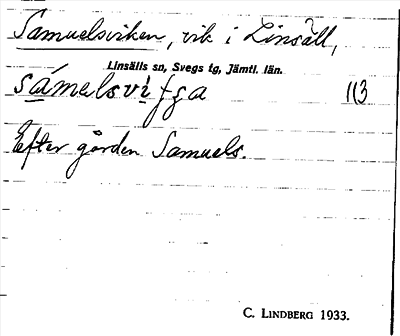 Samuelsviken, vik i Linsäll,
Linsälls sn, Svegs tg, Jämtl. län.
sámelsvi̇́ƒga 113
Efter gården Samuels.
C. LINDBERG 1933.